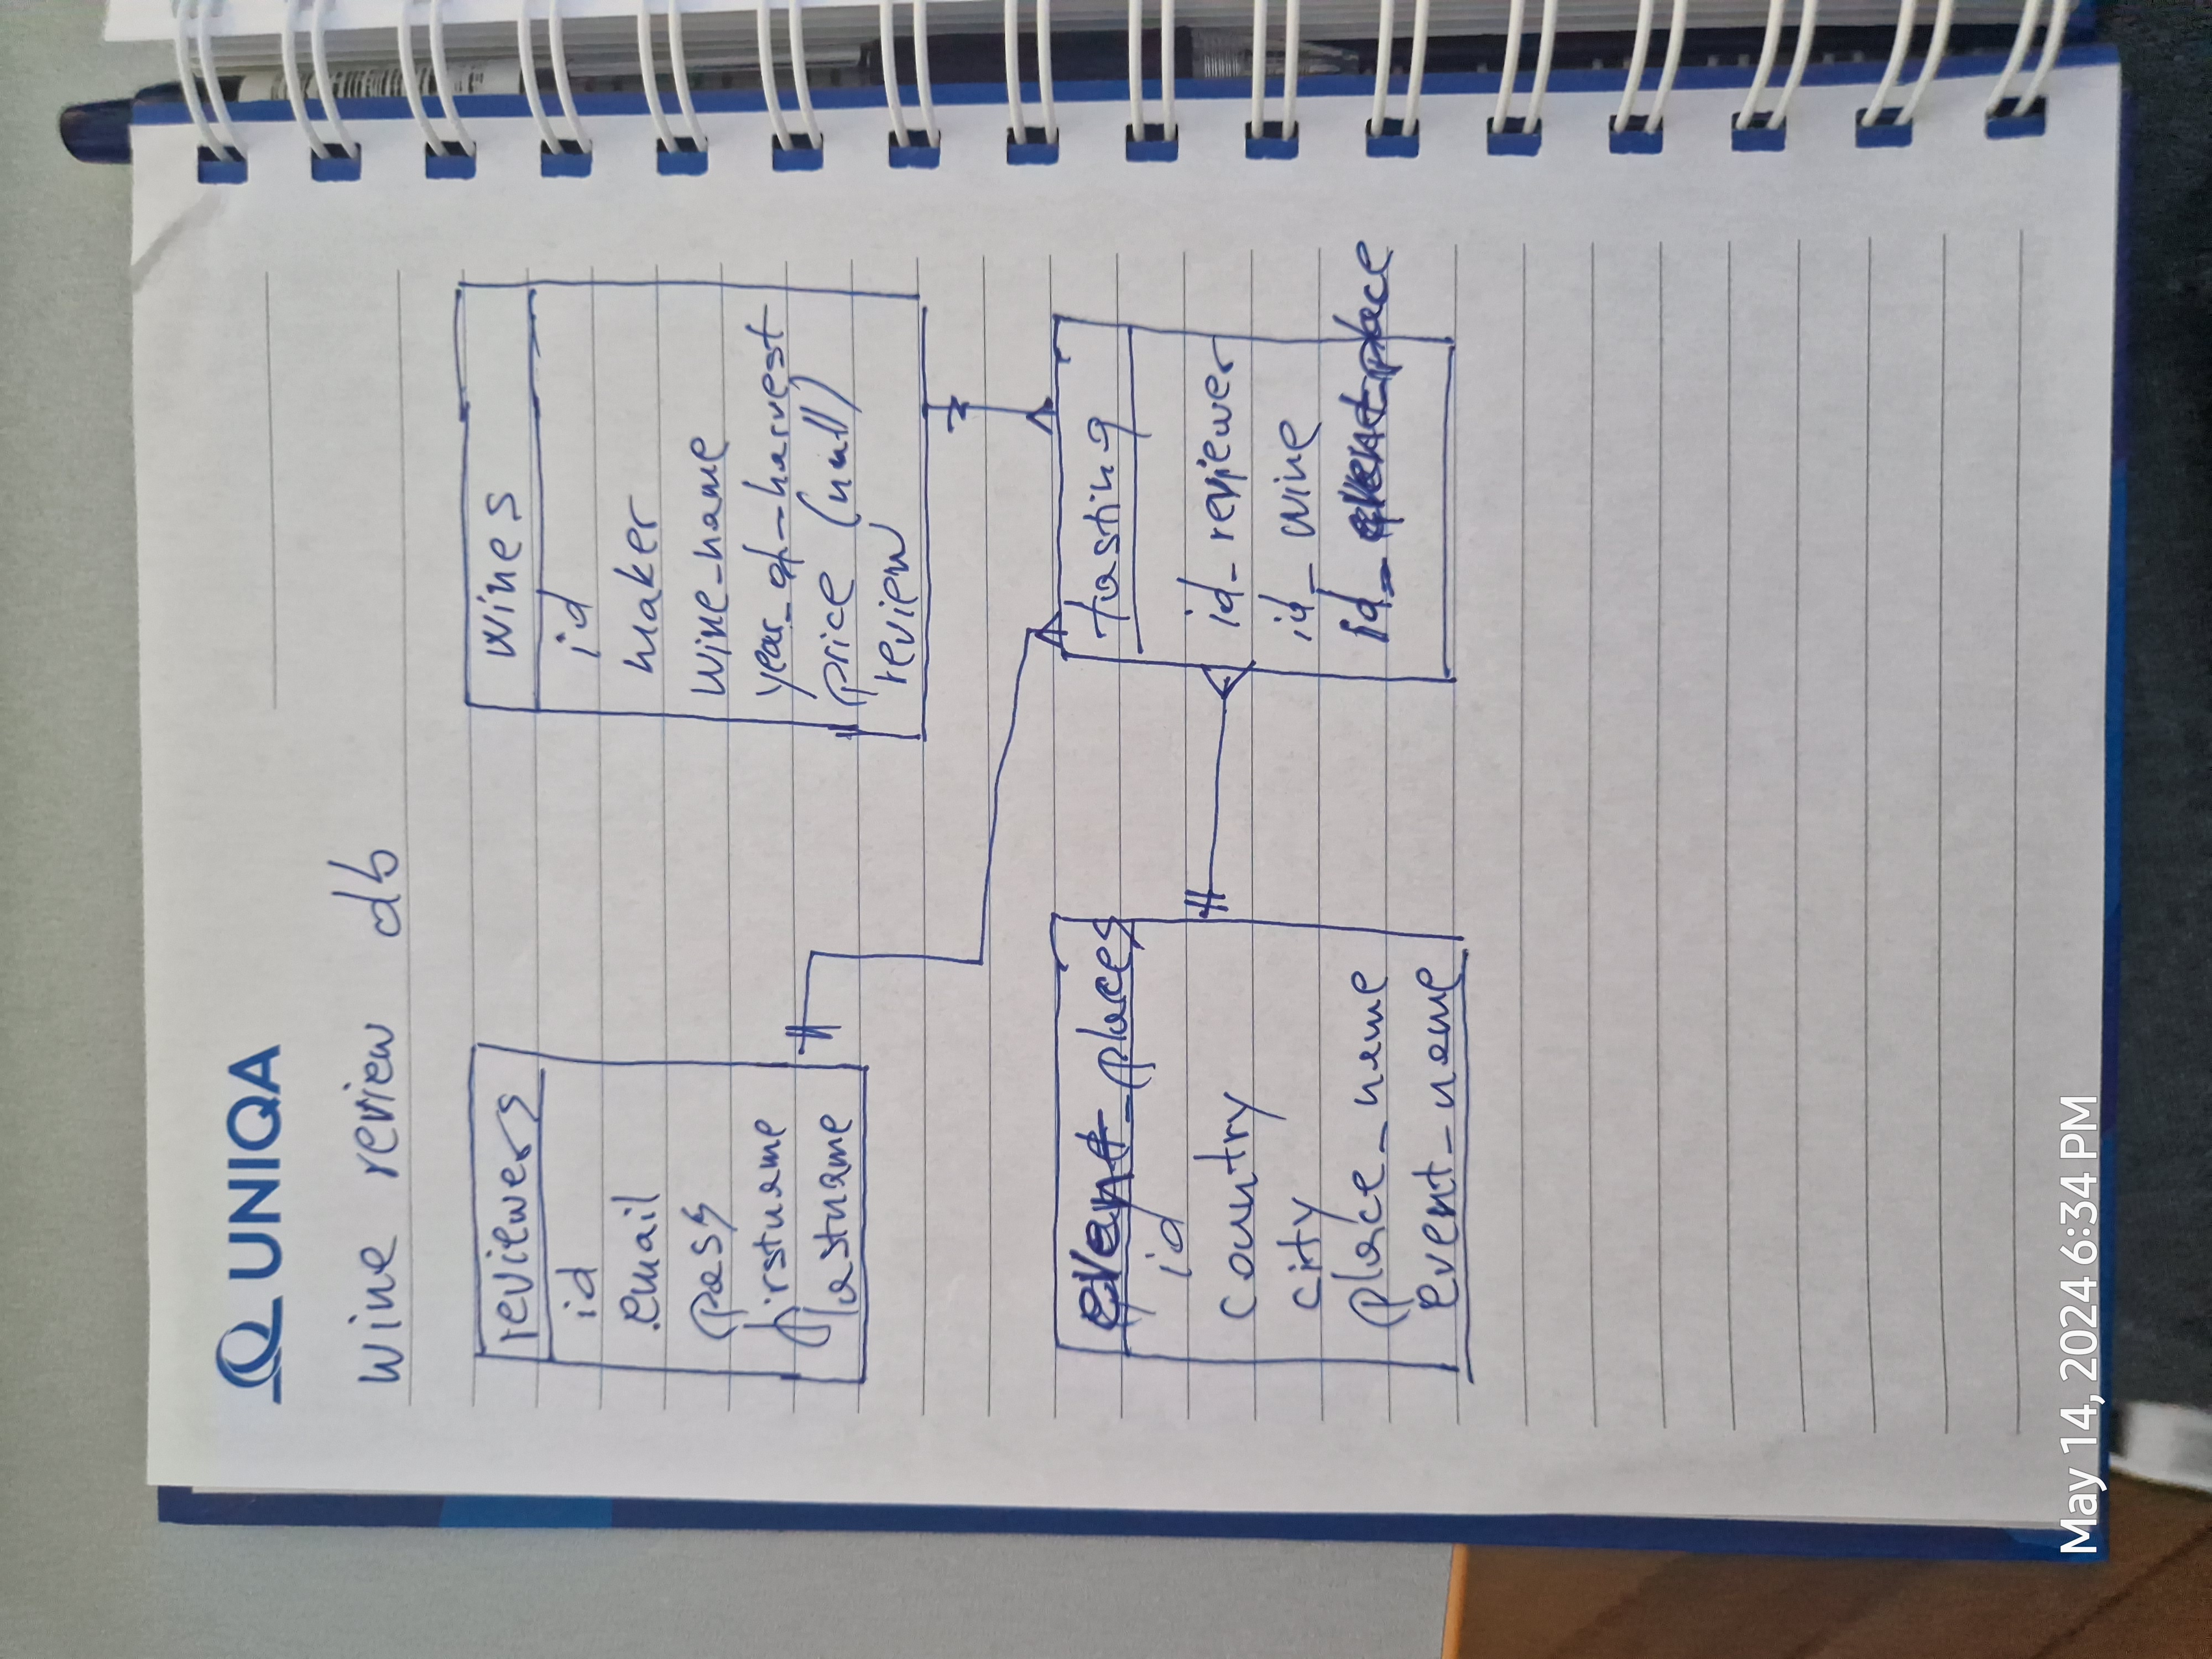 UNIQA
wine review db
reviewers
id
email
pass
firstname
lastname
wines
id
maker
wine_name
year_of_harvest
price (null)
review
event_places
id
country
city
place_name
event_name
tasting
id_reviewer
id_wine
id_eventplace
May 14, 2024 6:34 PM